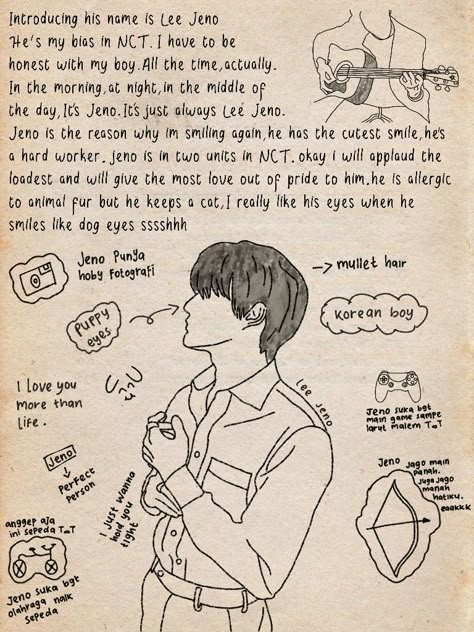 Introducing his name is Lee Jeno
He's my bias in NCT. I have to be
honest with my boy. All the time, actually.
In the morning, at night, in the middle of
the day, It's Jeno. It's just always Lee Jeno.
Jeno is the reason why im smiling again, he has the cutest smile, he's
a hard worker. jeno is in two units in NCT. okay i will applaud the
loadest and will give the most love out of pride to him. he is allergic
to animal fur but he keeps a cat, I really like his eyes when he
smiles like dog eyes sssshhh
Jeno Punya
hoby Fotografi
mullet hair
Puppy
eyes
Korean boy
I love you
more than
life.
Lee Jeno
Jeno suka bgt
main game sampe
larut malem T_T
Jeno
Perfect
Person
I Just wanna
hold you
tight
Jeno jago main
panah.
Juga Jago
manah
hatiku.
eaakkk
anggep aja
ini sepeda T_T
Jeno suka bgt
olahraga naik
sepeda